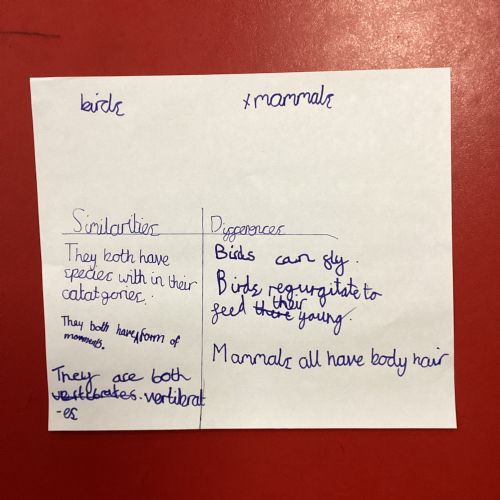 birds
x mammals
Similarities
They both have
species with in their
catatgories.
They both have a form of
moments.
They are both
vertebrates. vertibrat
-es
Differences
Birds can fly.
Birds regurgitate to
feed there their young.
Mammals all have body hair